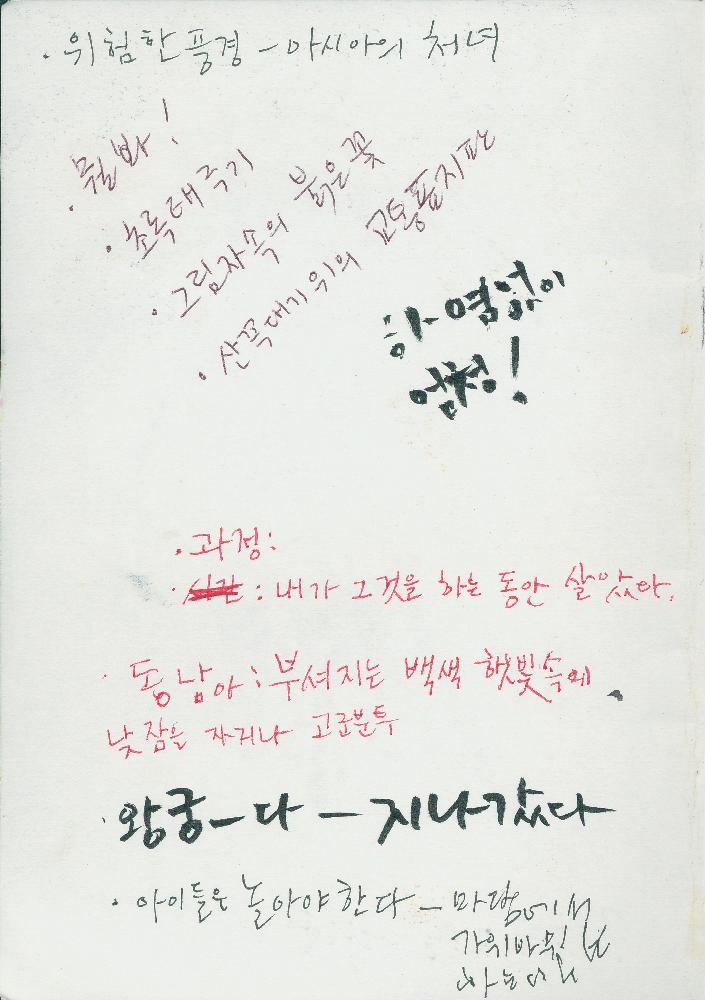 · 위험한 풍경 - 아시아의 처녀
· 뭘봐!
· 초록태극기
· 그림자속의 붉은꽃
· 산꼭대기위의 교통표지판
하염없이
엄청!
· 과정:
· 시간 : 내가 그것을 하는 동안 살았다.
· 동남아 : 부셔지는 백색 햇빛속에
낮잠을 자거나 고군분투
· 왕궁-다 - 지나갔다
· 아이들은 놀아야한다 - 마당에서
가위바위보
하는